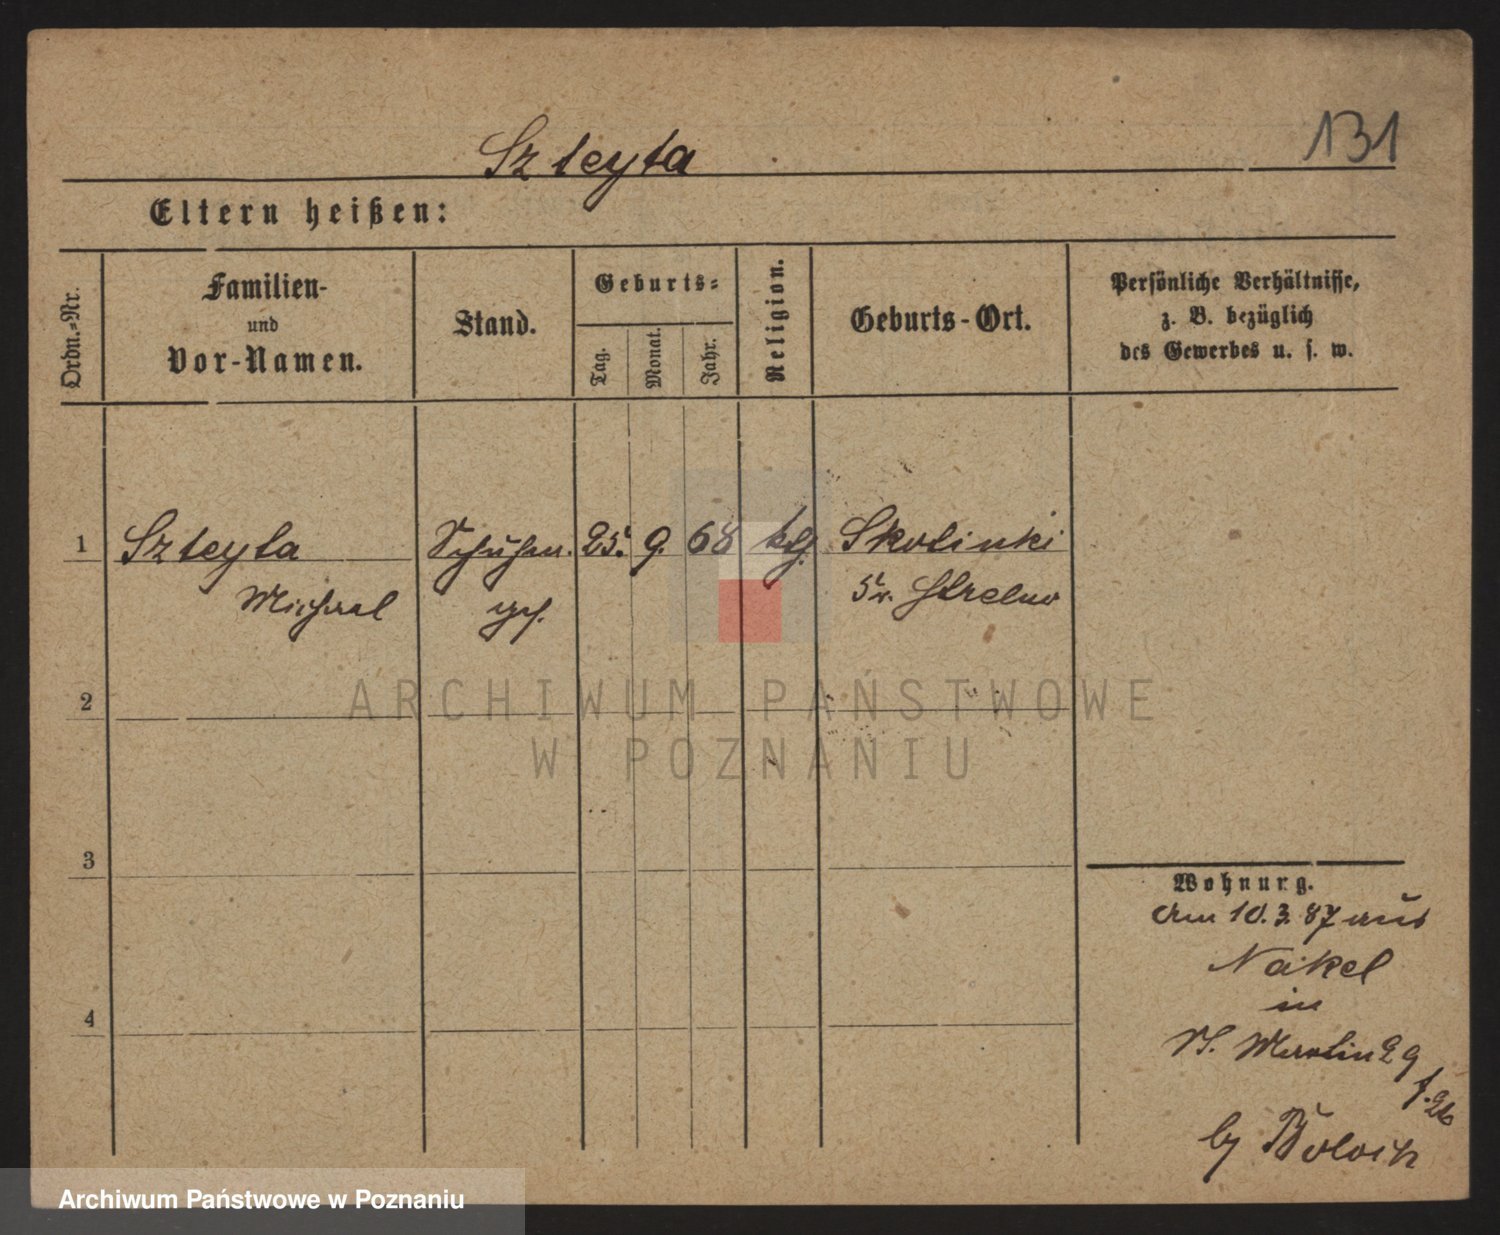 131
Szteyta
Eltern heißen:
Ordn.-Nr.
Familien-
und
Vor-Namen.
Stand.
Geburts-
Tag.
Monat.
Jahr.
Religion.
Geburts-Ort.
Persönliche Verhältnisse,
z. B. bezüglich
des Gewerbes u. s. w.
1 Szteyta Schuhm. 25. 9. 68 ktg. Skolinki
Michael ges. Kr. Strelno
2
ARCHIWUM PAŃSTWOWE
W POZNANIU
3
Wohnung.
Am 10. 3. 87 aus
Nakel
in
St. Martin 29
4
by
Archiwum Państwowe w Poznaniu